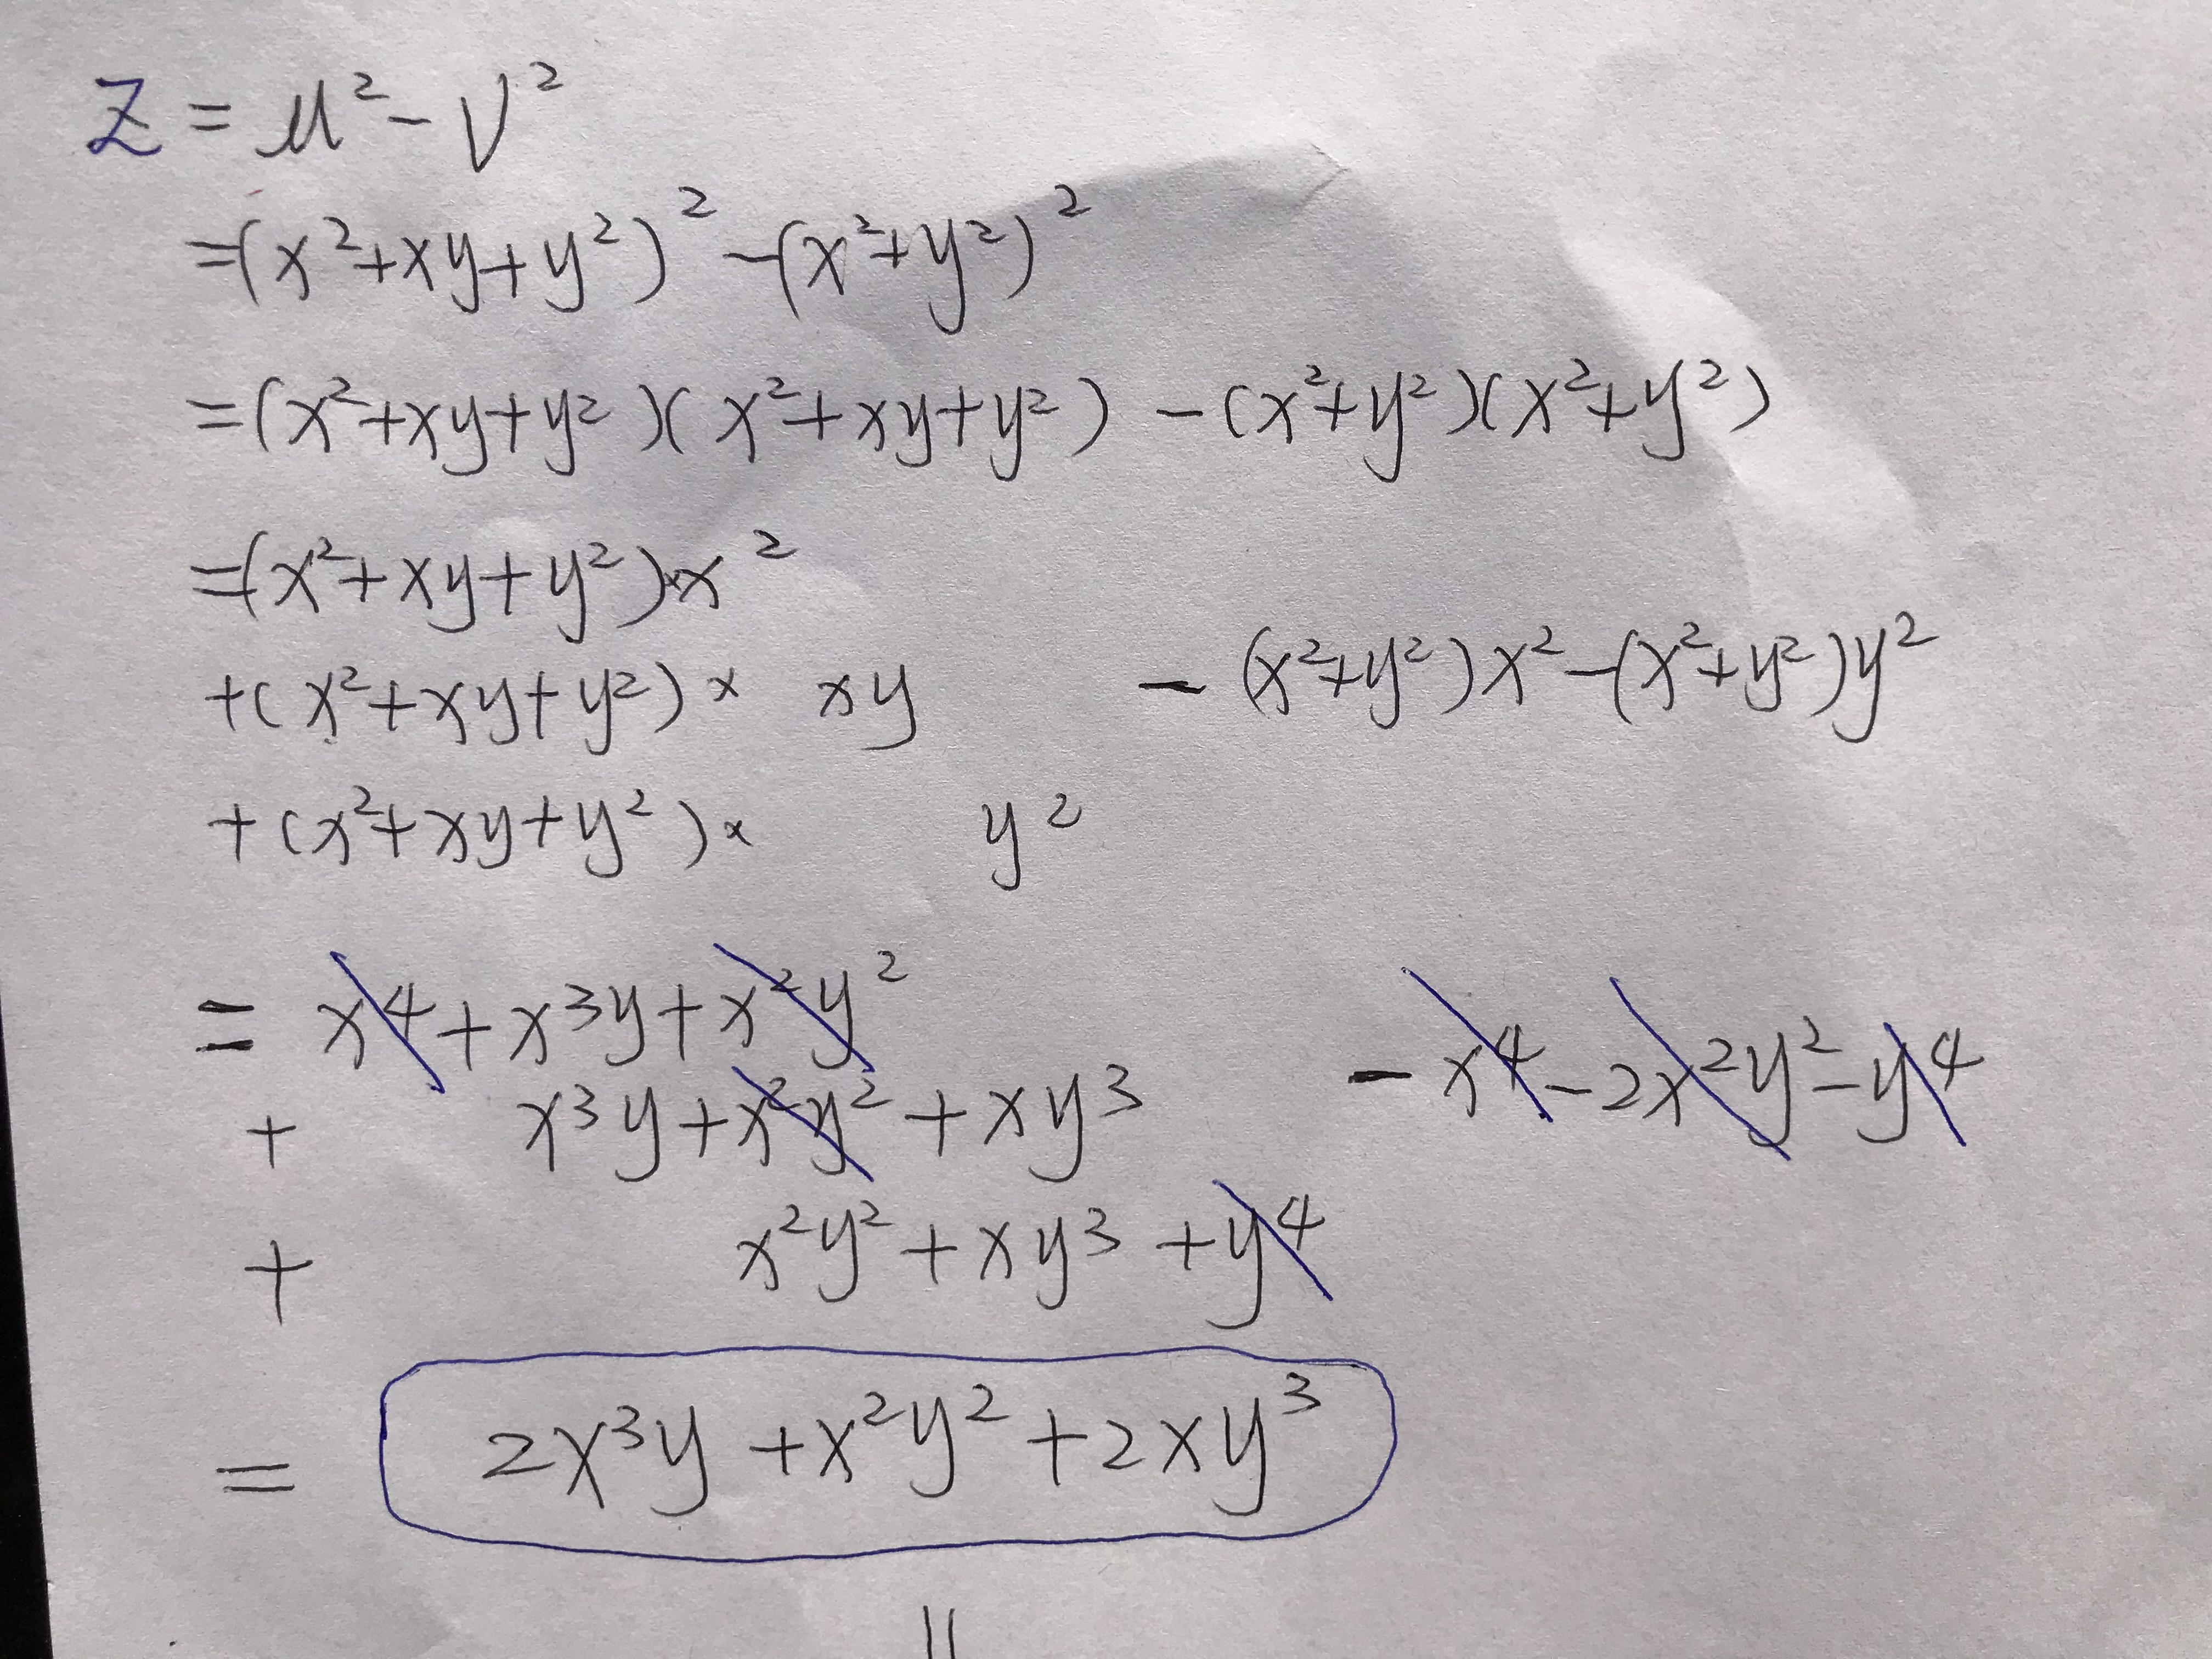 z = u² - v²
=(x²+xy+y²)² -(x²+y²)²
=(x²+xy+y²)(x²+xy+y²) -(x²+y²)(x²+y²)
=(x²+xy+y²)×x²
+(x²+xy+y²)× xy - (x²+y²)x²-(x²+y²)y²
+(x²+xy+y²)× y²
= x⁴+x³y+x²y²
+ x³y+x²y²+xy³ - x⁴-2x²y²-y⁴
+ x²y²+xy³+y⁴
= 2x³y+x²y²+2xy³
=